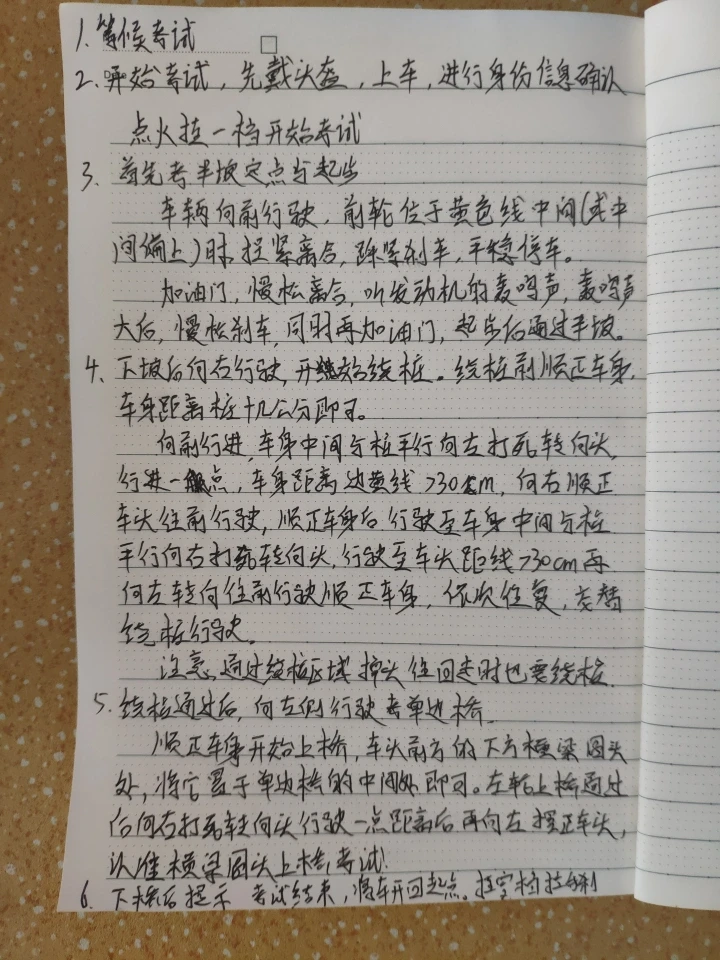 1. 等候考试
2. 开始考试，先戴头盔，上车，进行身份信息确认
点火挂一档开始考试
3. 首先考半坡定点与起步
车辆向前行驶，前轮位于黄色线中间(或中
间偏上)时捏紧离合，踩紧刹车，平稳停车。
加油门，慢松离合，听发动机的轰鸣声，轰鸣声
大后，慢松刹车，同时再加油门，起步后通过半坡。
4. 下坡后向右行驶，开始绕桩。绕桩前顺正车身，
车身距离桩十几公分即可。
向前行进，车身中间与桩平行向左打死转向头，
行进一点，车身距离边黄线>30cm，向右顺正
车头往前行驶，顺正车身后行驶至车身中间与桩
平行向右打死转向头，行驶至车头距线>30cm再
向左转向往前行驶顺正车身，依次往复，交替
绕桩行驶。
注意，通过绕桩区域掉头往回走时也要绕桩
5. 绕桩通过后，向左侧行驶考单边桥。
顺正车身开始上桥，车头前方的下方横梁圆头
处，将它置于单边桥的中间处即可。左轮上桥通过
后向右打死转向头行驶一点距离后再向左摆正车头，
认准横梁圆头上桥考试!
6. 下桥后提示 考试结束，将车开回起点。挂空档拉手刹